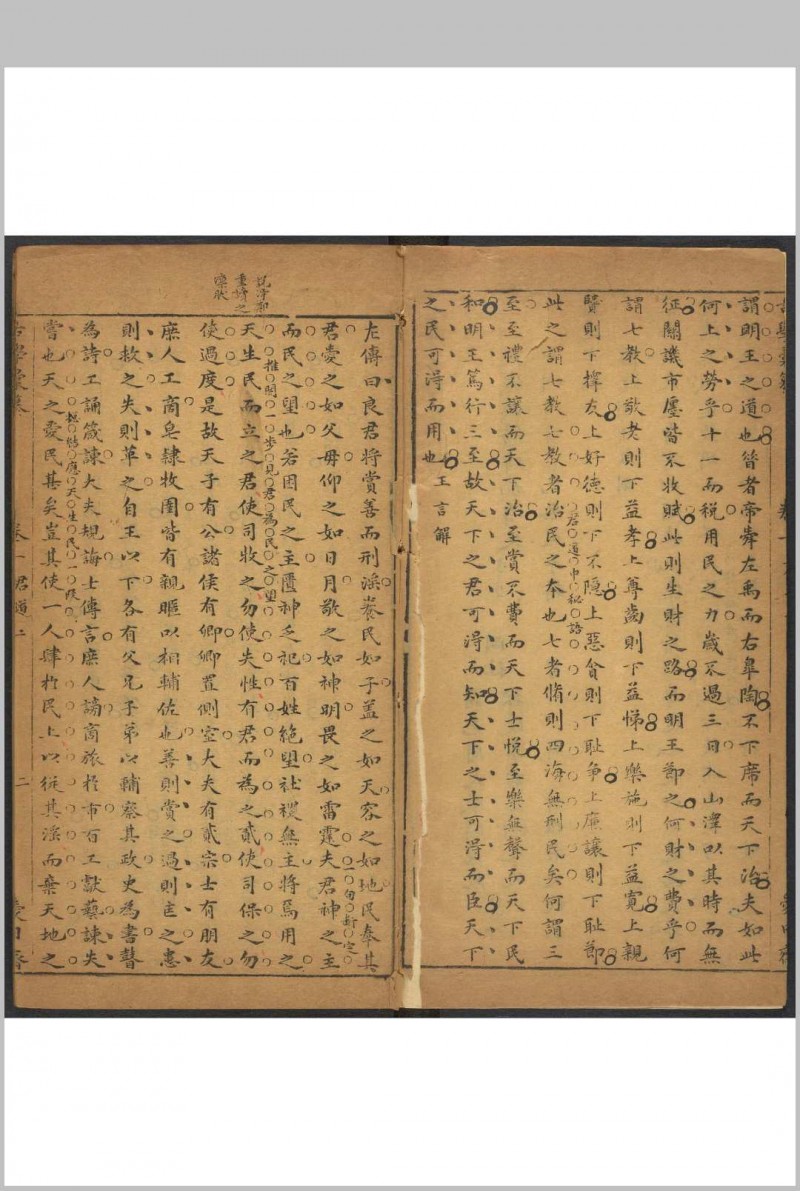 謂明王之道也昔者帝舜左禹而右臯陶不下席而天下治夫如此
何上之勞乎十一而稅用民之力歲不過三日入山澤以其時而無
征關議市廛皆不收賦此則生財之路而明王節之何財之費乎何
謂七教上敬老則下益孝上尊齒則下益悌上樂施則下益寬上親
賢則下擇友上好德則下不隱上惡貪則下耻争上廉讓則下耻節
此之謂七教七教者治民之本也
君道中秘語
七者脩則四海無刑民矣何謂三
至至禮不讓而天下治至賞不費而天下士悅至樂無聲而天下民
和明王篤行三至故天下之君可得而知天下之士可得而臣天下
之民可得而用也王言解
左傳曰良君將賞善而刑淫養民如子盖之如天容之如地民奉其
君愛之如父母仰之如日月敬之如神明畏之如雷霆
一句斷定
夫君神之主
而民之望也若困民之主匱神乏祀百姓絶望社稷無主將焉用之
推開一步見君為民之望
天生民而立之君使司牧之勿使失性有君而為之貳使司保之勿
使過度是故天子有公諸侯有卿卿置側室大夫有貳宗士有朋友
庶人工商皂隷牧圉皆有親暱以相輔佐也善則賞之過則匡之患
則救之失則革之自王以下各有父兄子弟以輔察其政史為書瞽
為詩工誦箴諫大夫規誨士傳言庶人謗商旅于市百工獻藝諫失
嘗也天之愛民甚矣豈其使一人肆於民上以從其淫而棄天地之
應天生民一段
卷一君道二
二